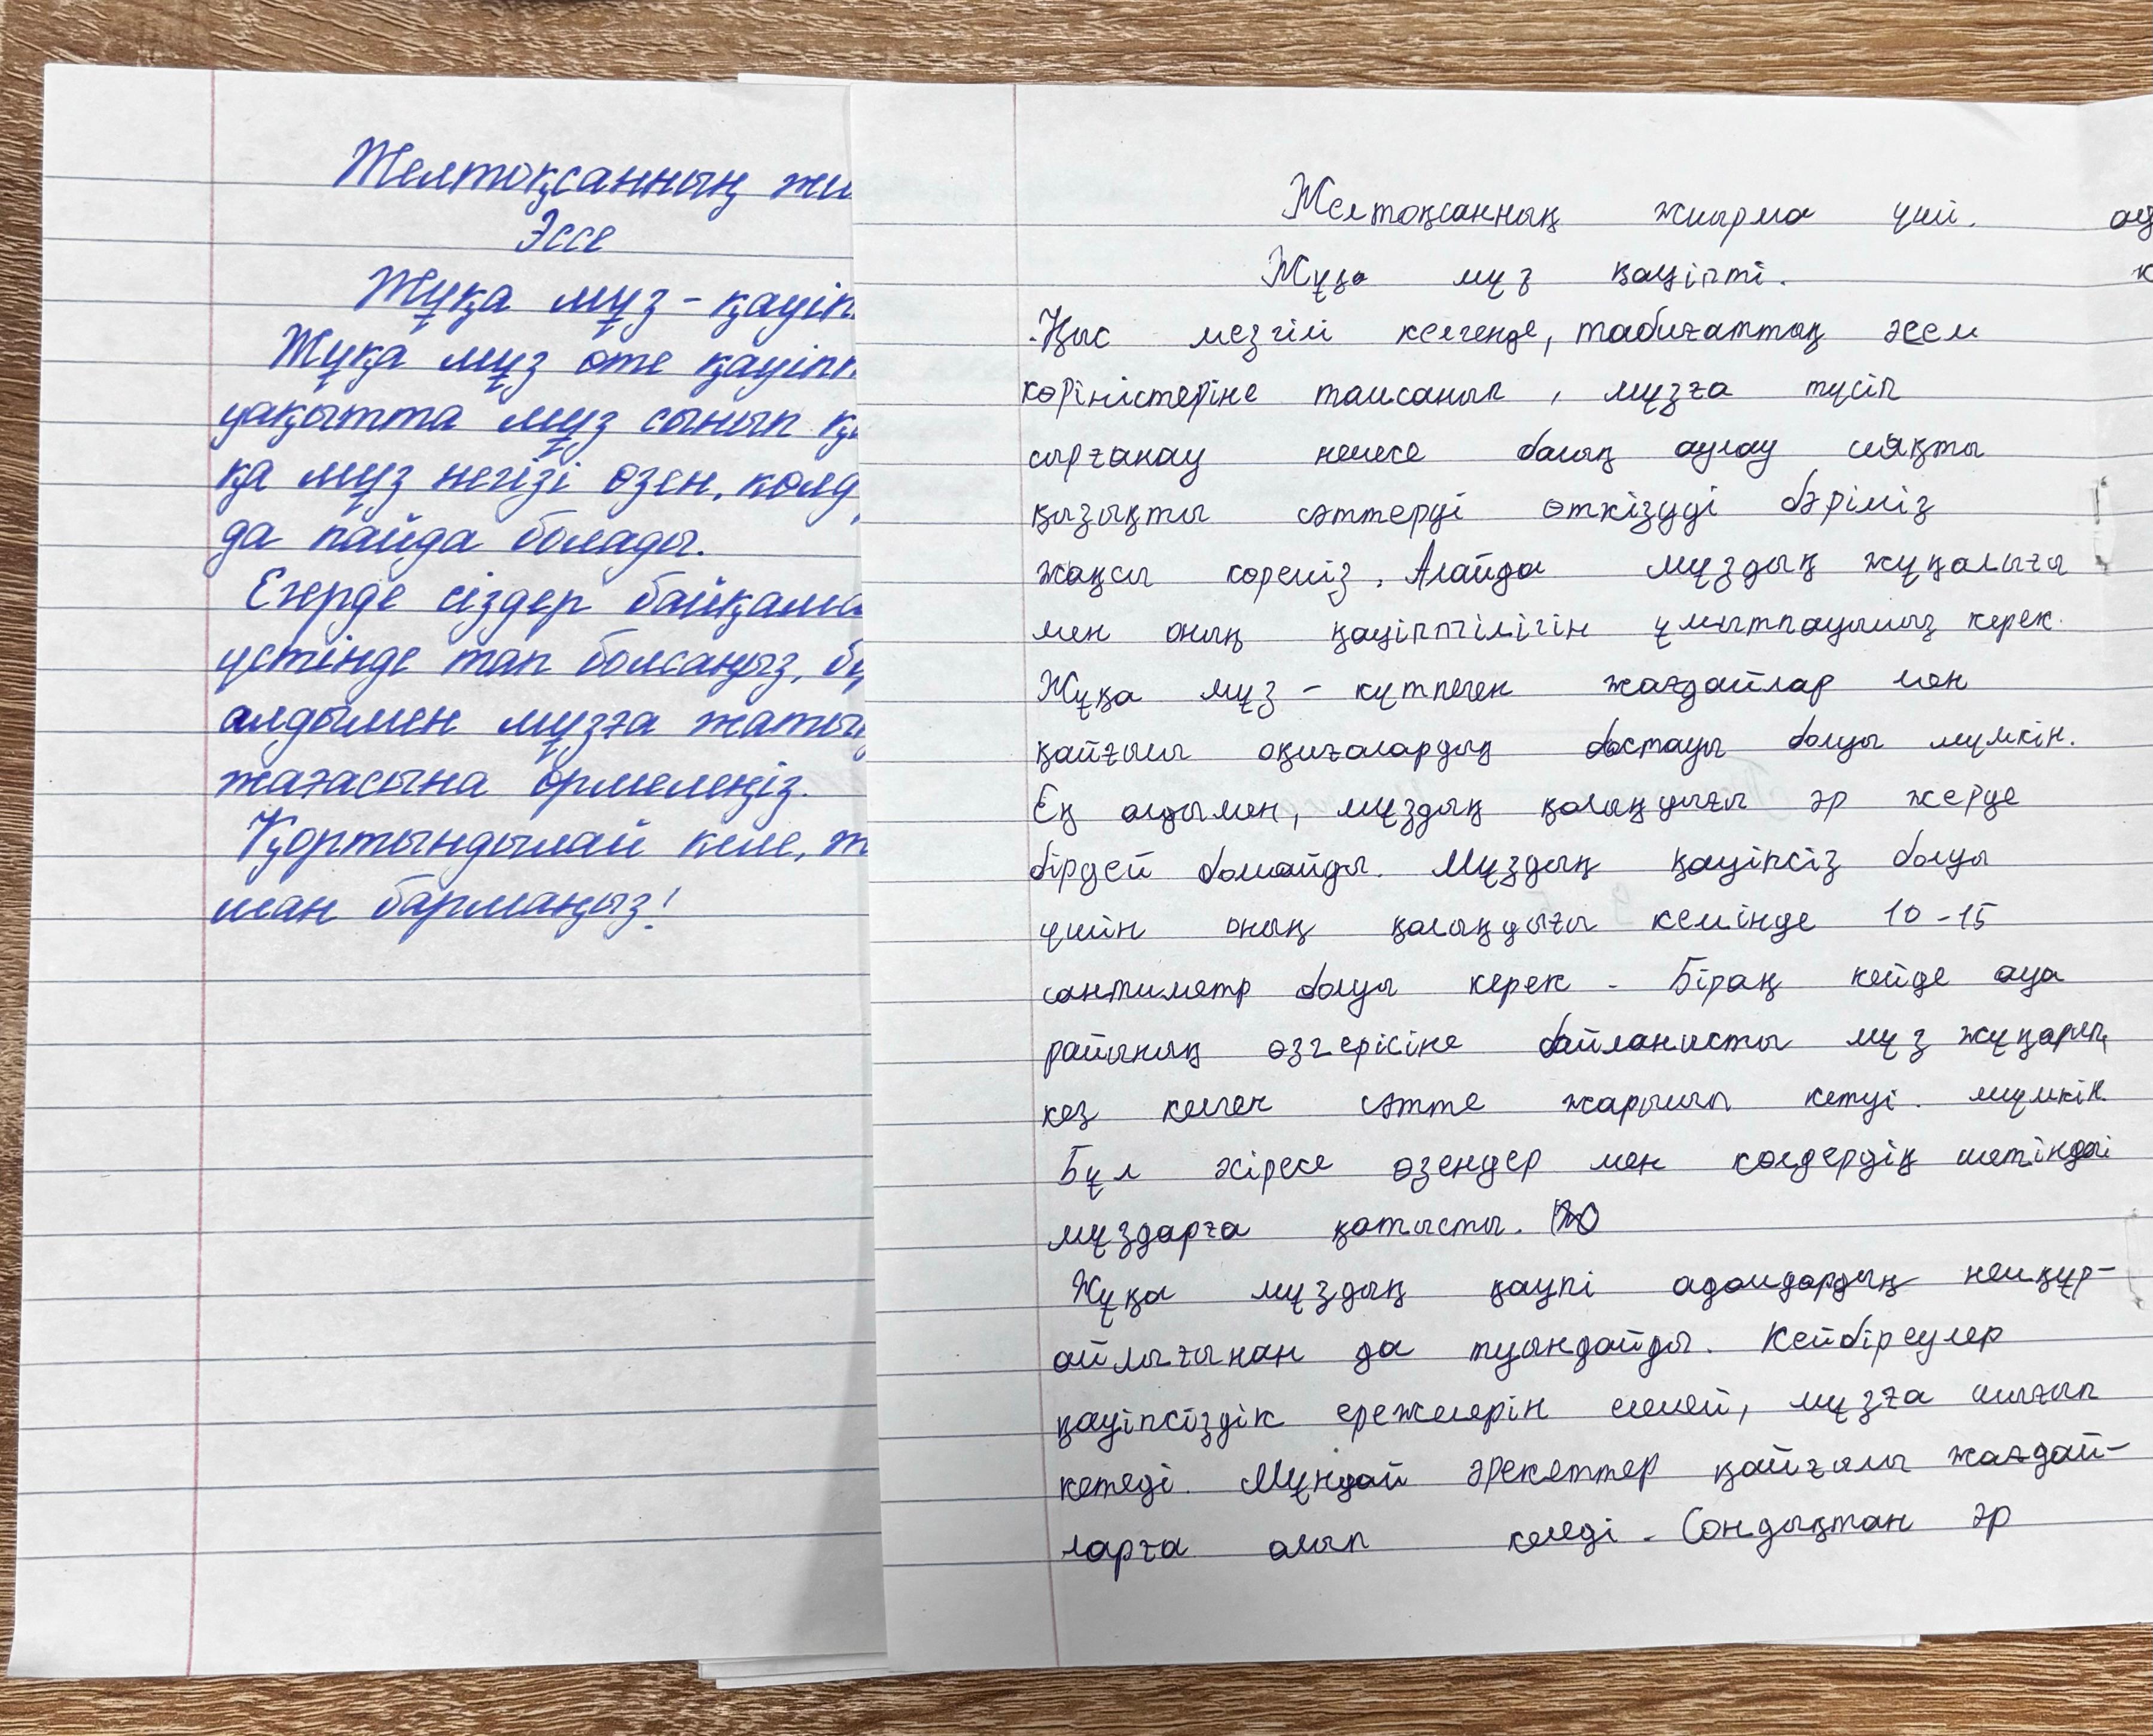 Желтоқсанның жи
Эссе
Жұқа мұз - қауіп
Жұқа мұз өте қауіпт
уақытта мұз сынып қ
қа мұз негізі өзен, көлд
да пайда болады.
Егерде сіздер байқама
үстінде тап болсаңыз, бұ
алдымен мұзға жатың
жағасына өрмелеңіз.
Қортындылай келе, ж
шан бармаңыз!
Желтоқсанның жиырма үші.
Жұқа мұз қауіпті.
Қыс мезгілі келгенде, табиғаттың әсем
көріністеріне тамсанып, мұзға түсіп
сырғанау немесе балық аулау сияқты
қызықты сәттерді өткізуді бәріміз
жақсы көреміз. Алайда мұздың жұқалығы
мен оның қауіптілігін ұмытпауымыз керек.
Жұқа мұз - күтпеген жағдайлар мен
қайғылы оқиғалардың бастауы болуы мүмкін.
Ең алдымен, мұздың қалыңдығы әр жерде
бірдей болмайды. Мұздың қауіпсіз болуы
үшін оның қалыңдығы кемінде 10-15
сантиметр болуы керек. Бірақ кейде ауа
райының өзгерісіне байланысты мұз жұқарып,
кез келген сәтте жарылып кетуі мүмкін.
Бұл әсіресе өзендер мен көлдердің шетіндегі
мұздарға қатысты.
Жұқа мұздың қаупі адамдардың немқұр-
айлығынан да туындайды. Кейбіреулер
қауіпсіздік ережелерін елемей, мұзға шығып
кетеді. Мұндай әрекеттер қайғылы жағдай-
ларға алып келеді. Сондықтан әр